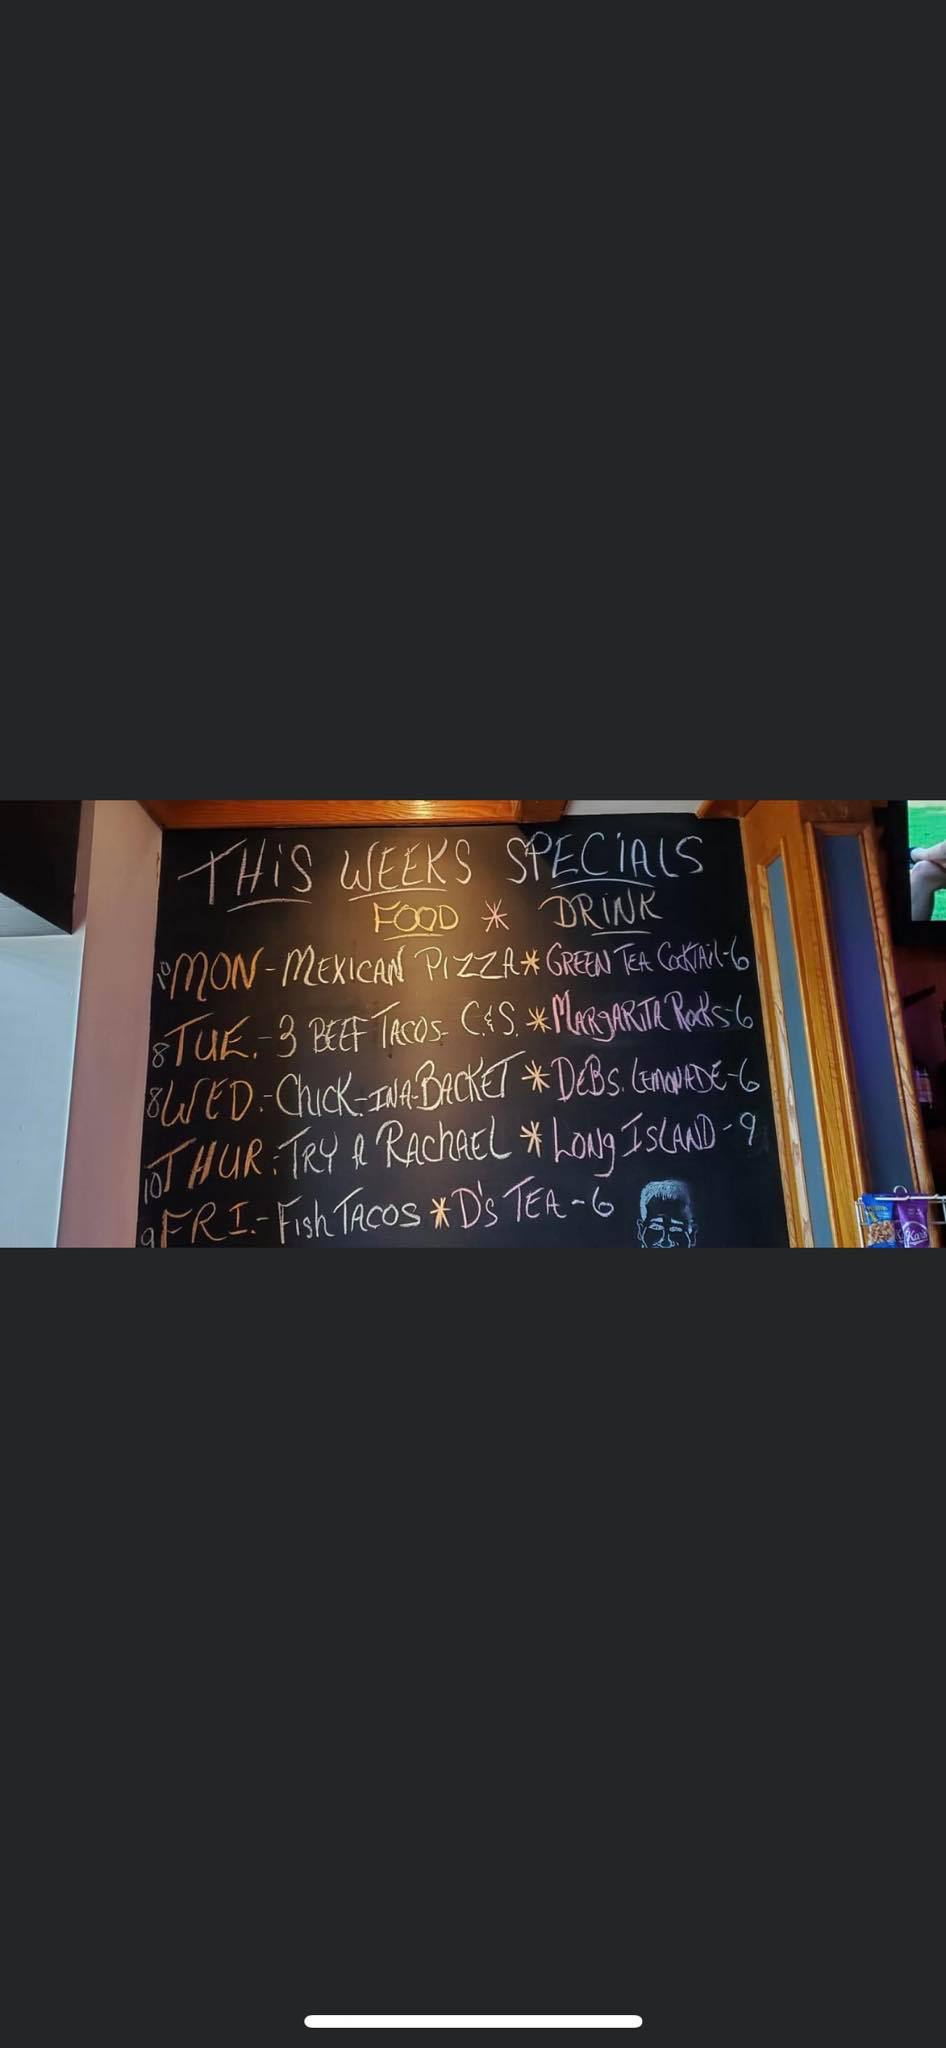 THiS WEEKS SPECiALS
FOOD * DRINK
10 MON - MEXICAN PIZZA * GREEN TEA COCKTAiL - 6
8 TUE. - 3 BEEF TACOS - C.&S. * MARGARITA ROCKS - 6
8 WED. - CHICK-IN-A-BACKET * DEBS. LEMONADE - 6
10 THUR. - TRY A RACHAEL * LONG ISLAND - 9
9 FRI. - FISH TACOS * D's TEA - 6
Kar's